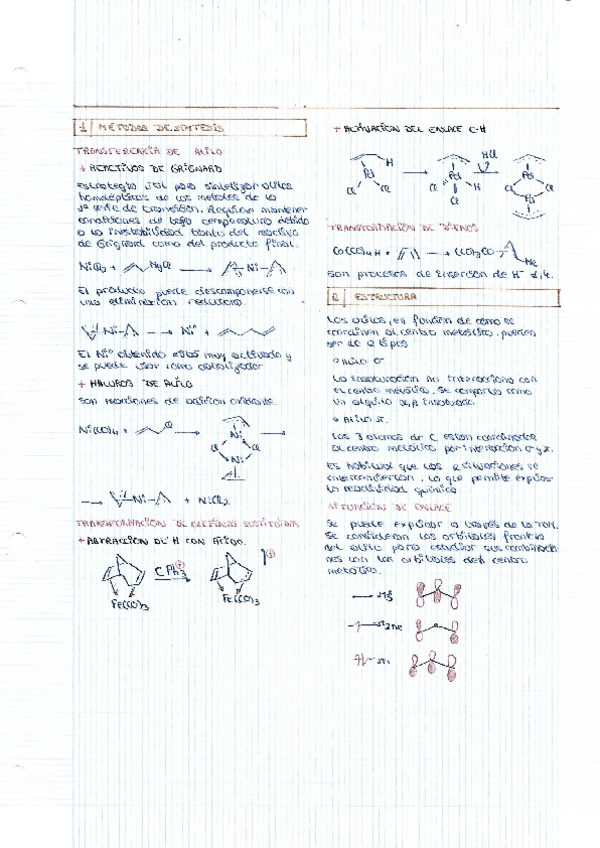 1 MÉTODOS DE SÍNTESIS
TRANSFERENCIA DE ALILO
+ REACTIVOS DE GRIGNARD
Estrategia útil para sintetizar alilos
homolépticos de los metales de la
1ª serie de transición. Requiere mantener
condiciones de baja temperatura debido
a la inestabilidad tanto del reactivo
de Grignard como del producto final.
NiCl2 + MgCl → Ni
El producto puede descomponerse con
una eliminación reductora.
Ni → Ni° +
El Ni° obtenido está muy activado y
se puede usar como catalizador
+ HALUROS DE ALILO
Son reacciones de adición oxidante.
Ni(CO)4 + Cl → Ni Cl Cl Ni →
→ Ni + NiCl2
TRANSFORMACIÓN DE OLEFINAS SUSTITUIDA
+ ABSTRACCIÓN DE H CON ÁCIDO.
CPh3 ⊕ ⊕
Fe(CO)3 Fe(CO)3
+ ACTIVACIÓN DEL ENLACE C-H
H Pd Cl Cl → Pd Cl Cl HCl Pd Cl Cl Pd
TRANSFORMACIÓN DE DIENOS
Co(CO)4H + → (CO)3Co Me
Son procesos de inserción de H 1,4.
2 ESTRUCTURA
Los alilos, en función de como se
coordinan al centro metálico, pueden
ser de 2 tipos
Alilo σ
La insaturación no interacciona con
el centro metálico. Se comporta como
un alquilo
Alilo π.
Los 3 átomos de C están coordinados
al centro metálico por interacción σ y π.
Es habitual que las 2 situaciones se
interconviertan, lo que permite explicar
la reactividad química
SITUACIÓN DE ENLACE
Se puede explicar a través de la TOM.
Se consideran los orbitales frontera
del alilo para estudiar sus combinacio
nes con los orbitales del centro
metálico.